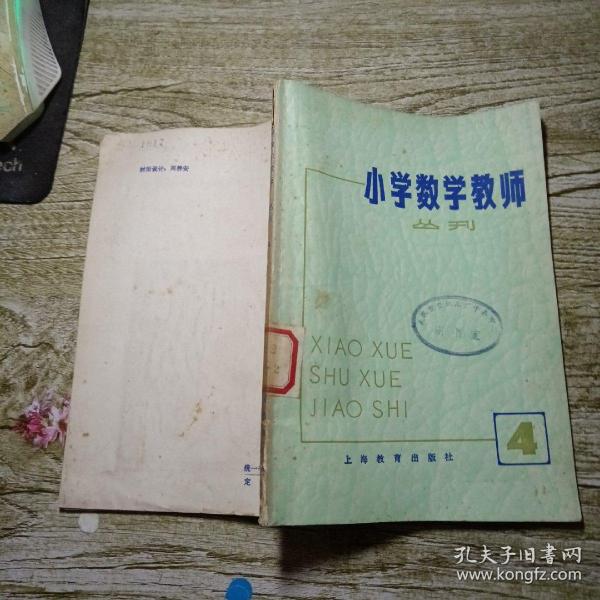 小学数学教师
丛刊
XIAO XUE
SHU XUE
JIAO SHI
4
上海教育出版社
封面设计：
统一
定
ech
孔夫子旧书网
www.kongfz.com